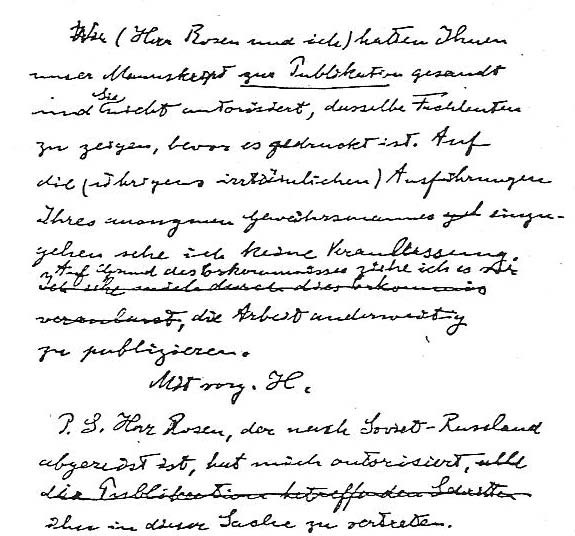 Wir (Herr Rosen und ich) hatten Ihnen
unser Manuskript zur Publikation gesandt
und Sie nicht autorisiert, dasselbe Fachleuten
zu zeigen, bevor es gedruckt ist. Auf
die (übrigens irrtümlichen) Ausführungen
Ihres anonymen Gewährsmannes einzu-
gehen sehe ich keine Veranlassung.
Auf Grund des Vorkommnisses ziehe ich es vor
Ich sehe mich durch dies Vorkommnis
veranlasst, die Arbeit anderweitig
zu publizieren.
Mit vorz. H.
P. S. Herr Rosen, der nach Soviet-Russland
abgereist ist, hat mich autorisiert,
die Publikation betreffenden Schritte
ihn in dieser Sache zu vertreten.